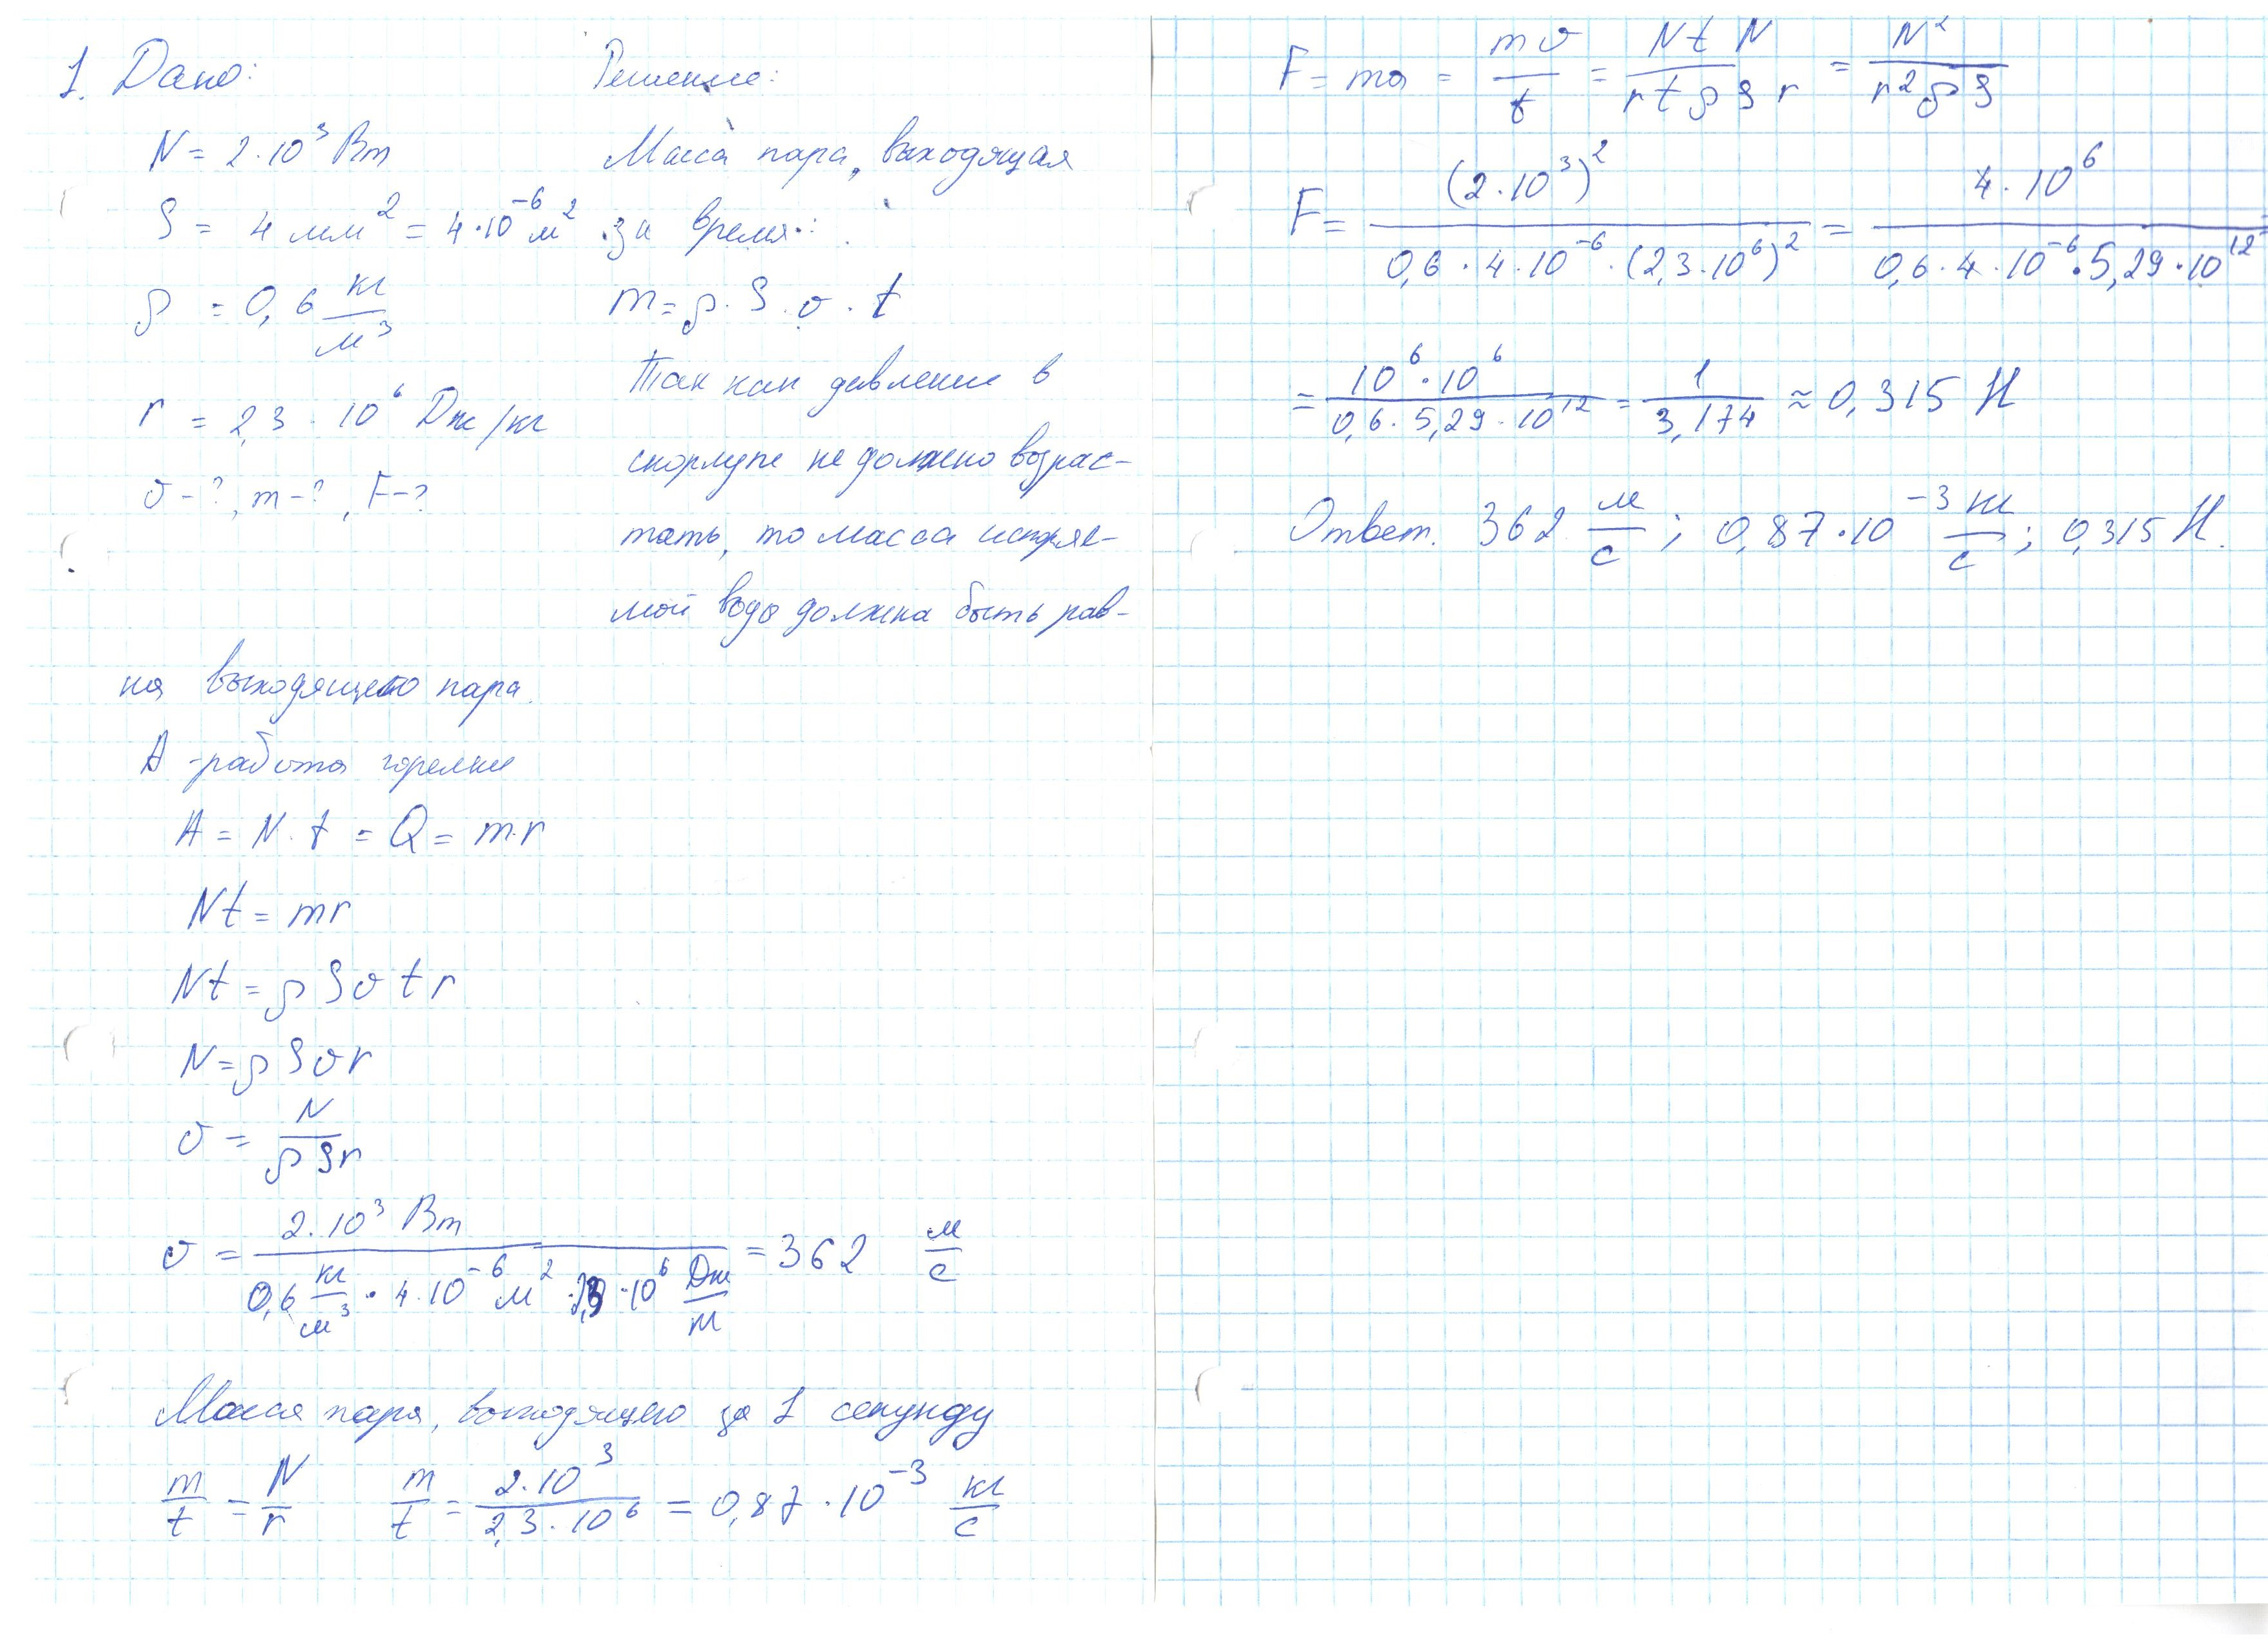 1. Дано:
N = 2·10³ Вт
S = 4 мм² = 4·10⁻⁶ м²
ρ = 0,6 кг/м³
r = 2,3 · 10⁶ Дж/кг
υ-?, m-?, F-?
Решение:
Масса пара, выходящая
за время:
m = ρ · S · υ · t
Так как давление в
скорлупе не должно возрас-
тать, то масса испаряе-
мой воды должна быть рав-
на выходящего пара.
A - работа горелки
A = N · t = Q = m·r
Nt = mr
Nt = ρSυtr
N = ρSυr
υ = N/(ρSr)
υ = 2·10³ Вт/(0,6 кг/м³ · 4·10⁻⁶ м² · 2,3 · 10⁶ Дж/кг) = 362 м/с
Масса пара, выходящего за 1 секунду
m/t = N/r m/t = 2·10³/(2,3·10⁶) = 0,87 · 10⁻³ кг/с
F = ma = mυ/t = NtN/(rtρSr) = N²/(r²ρS)
F = (2·10³)²/(0,6 · 4·10⁻⁶ · (2,3·10⁶)²) = 4·10⁶/(0,6·4·10⁻⁶·5,29·10¹²)
= 10⁶·10⁶/(0,6·5,29·10¹²) = 1/3,174 ≈ 0,315 Н
Ответ. 362 м/с; 0,87·10⁻³ кг/с; 0,315 Н.